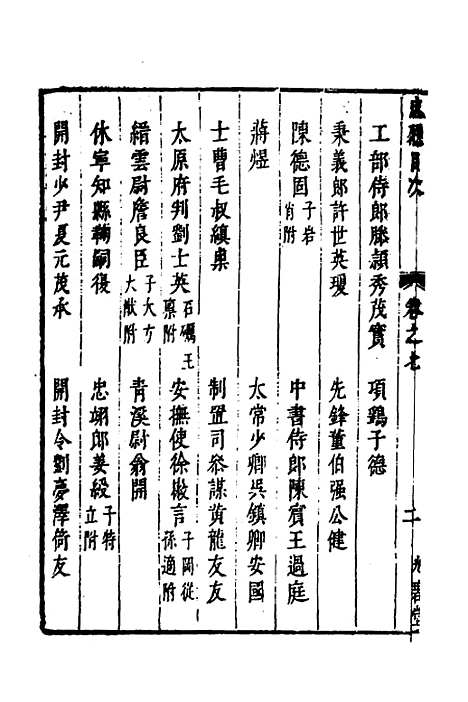 工部侍郎滕頴秀茂實 項鵛子德
秉義郎許世英瓊 先鋒董伯强公健
陳德固子岩肖附 中書侍郎陳賓王過庭
蔣煜 太常少卿吳鎮卿安國
士曹毛叔縝㮚 制置司叅謀黄龍友友
太原府判劉士英石礪王禀附 安撫使徐揆言子岡從孫適附
縉雲尉詹良臣子大方大猷附 青溪尉翁開
休寧知縣嗣復 忠翊郎姜綬子特立附
開封少尹夏元茂承 開封令劉夢澤倚友
目次 卷之七
二